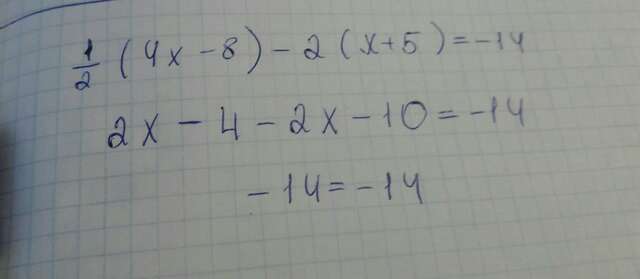 1/2 (4x - 8) - 2 (x + 5) = -14
2x - 4 - 2x - 10 = -14
-14 = -14